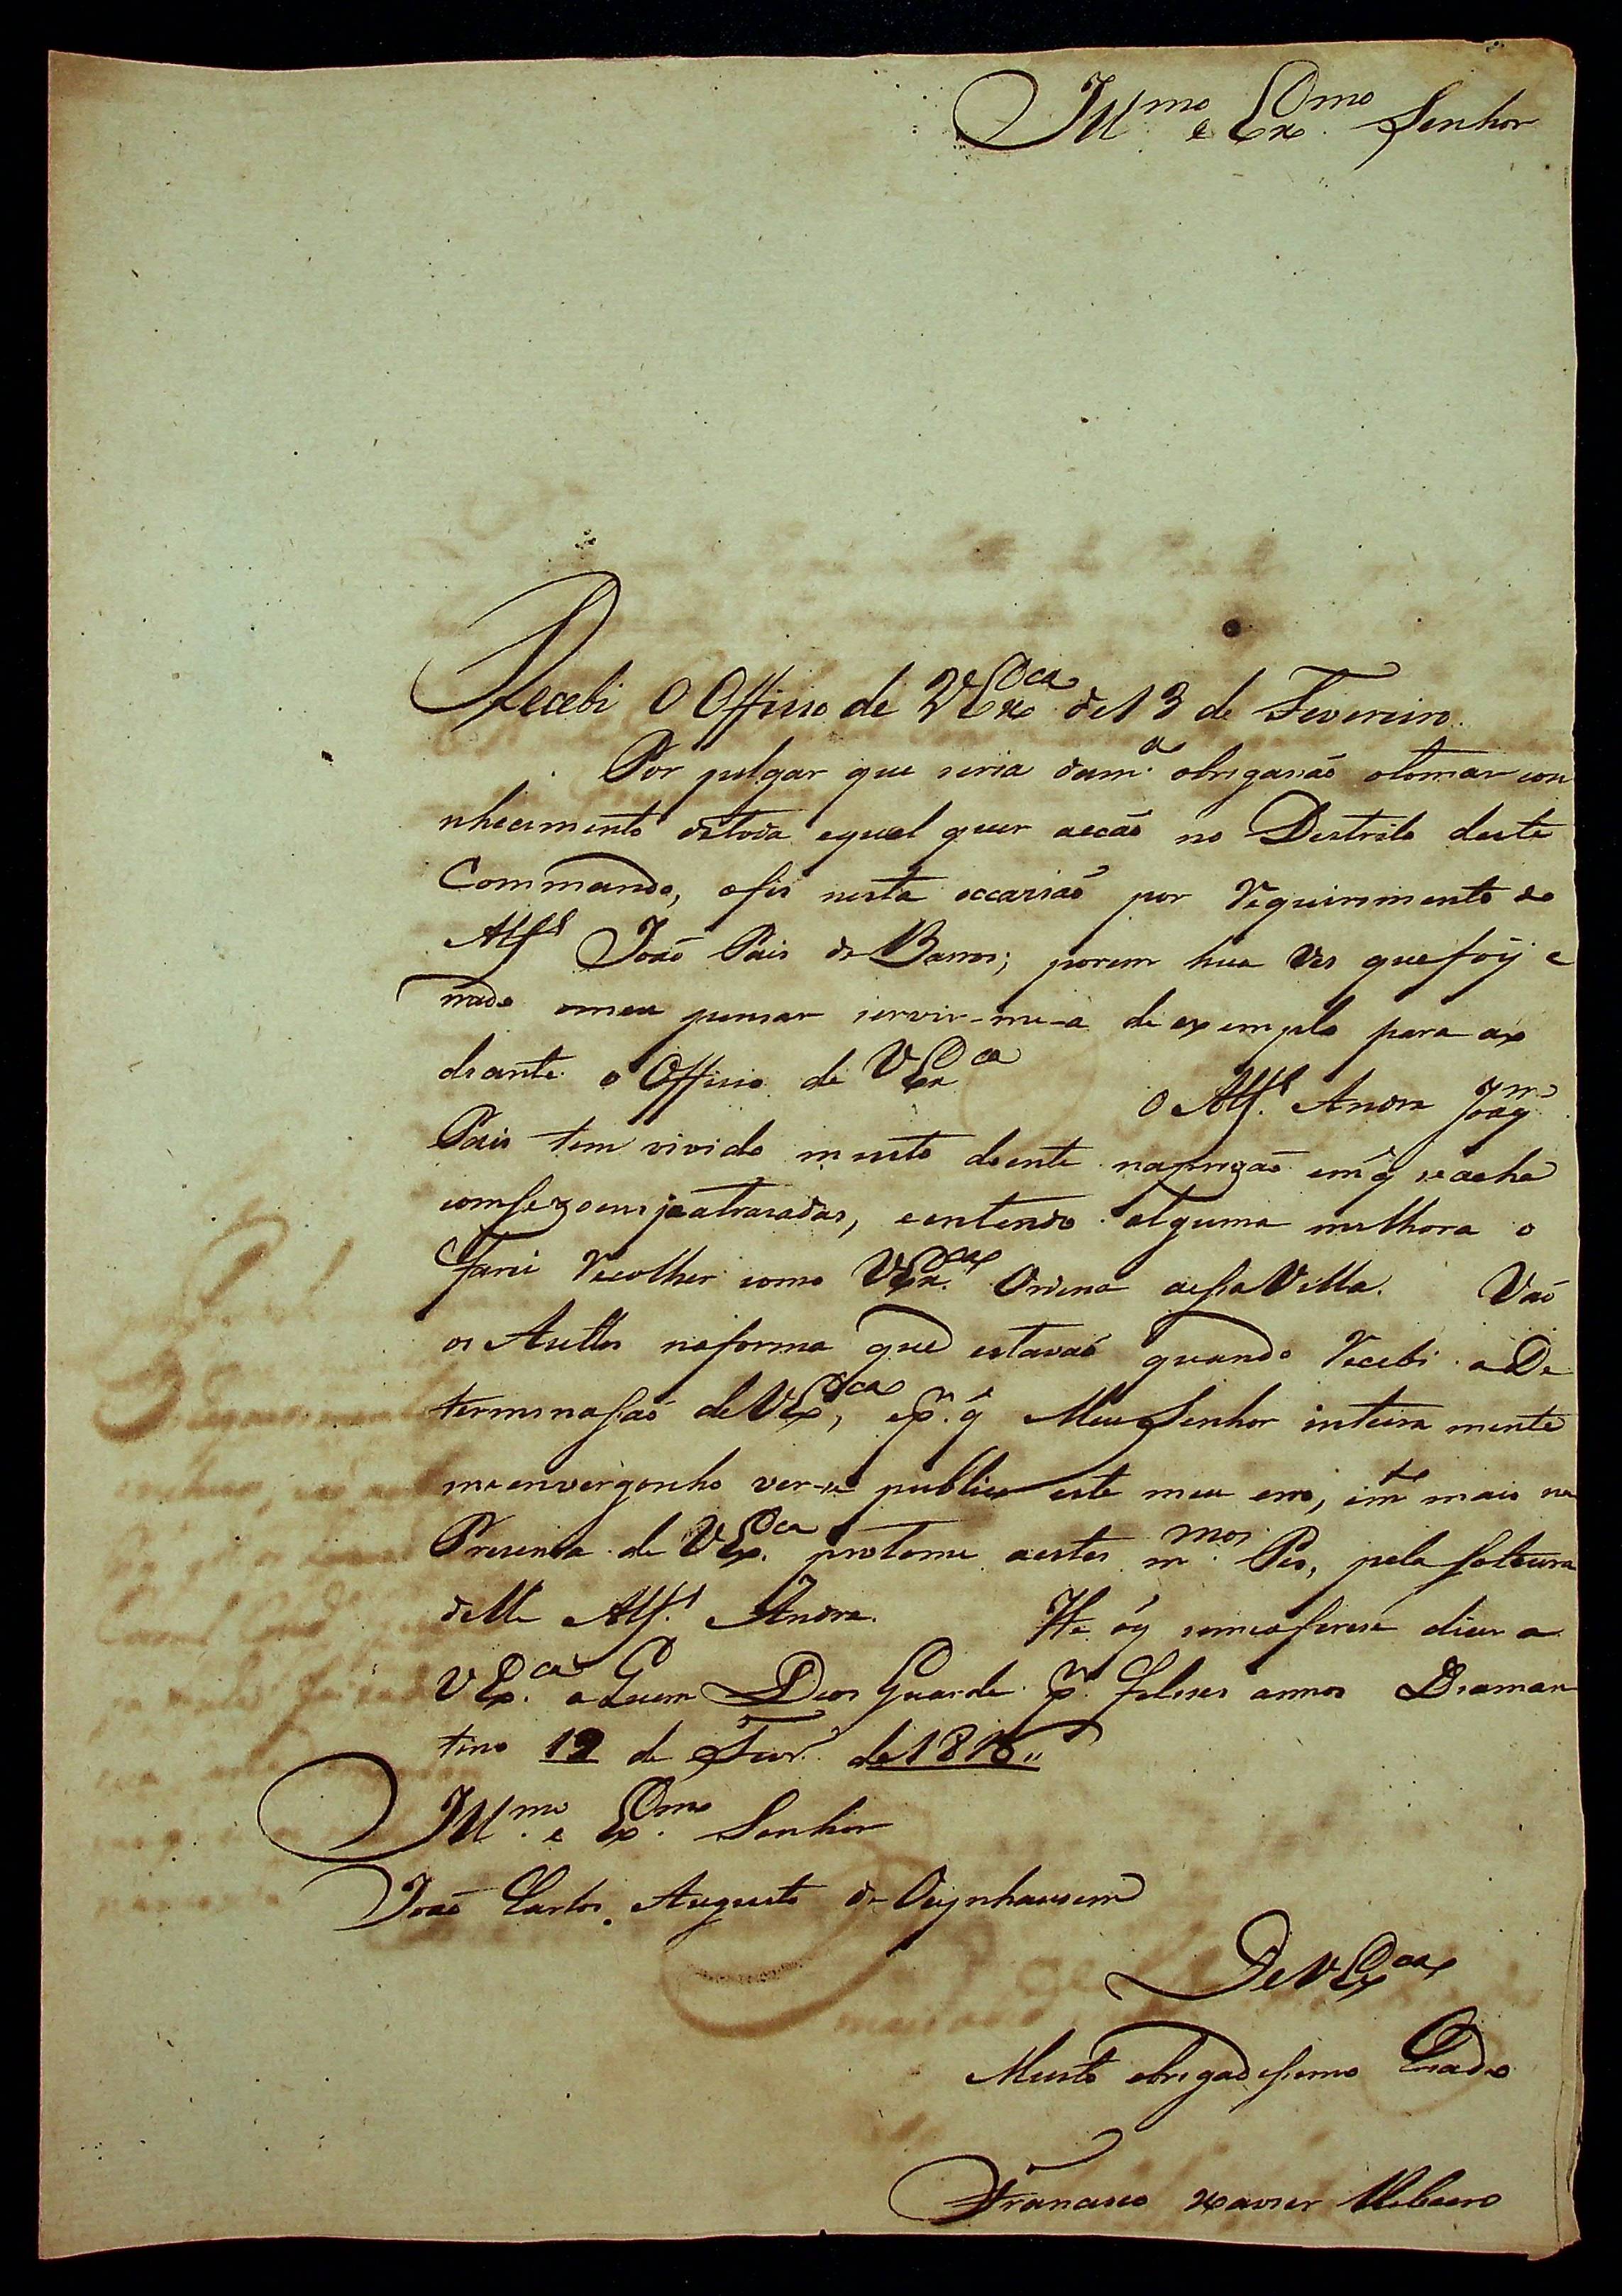 Ill.mo e Ex.mo Senhor
Recebi O Officio de VEx.ca de 13 de Fevereiro.
Por julgar que seria dam.a obrigasaõ otomar con
nhecimento detoda equal quer accaõ no Destrito deste
Commando, ofis nesta occasiaõ por Requirimento do
Alf.s Joaõ Pais de Barros; porem hua Ves que foy e
rrado omeu pensar servir-me-a de exemplo para ao
diante o Officio de VEx.ca O Alf.s Andre Joaq.m
Pais tem vivido muito doente naprizaõ em q̃ seacha
comsezoens jaatrasadas, eentendo alguma milhora o
farei Recolher como VEx.ca Ordena aessaVilla. Vaõ
os Auttos naforma que estavaõ quando Recebi a De
terminassaõ deVEx.ca, ep.r q̃ Meu Senhor inteira mente
meenvergonho ver-se publico este meu erro, em.to mais na
Presensa de VEx.ca protome aestes m.mos Pes, pela soltura
delle Alf.s Andre. He oq̃ semeoferese dizer a
VEx.ca aQuem Deos Guarde p.r felises annos Diaman
tino 19 de Fevr.o de 1816,,
Ill.mo e Ex.mo Senhor
Joaõ Carlos Augusto de Oeynhausem
DeVEx.ca
Muito obrigadissimo Criado
Francisco Xavier Ribeiro